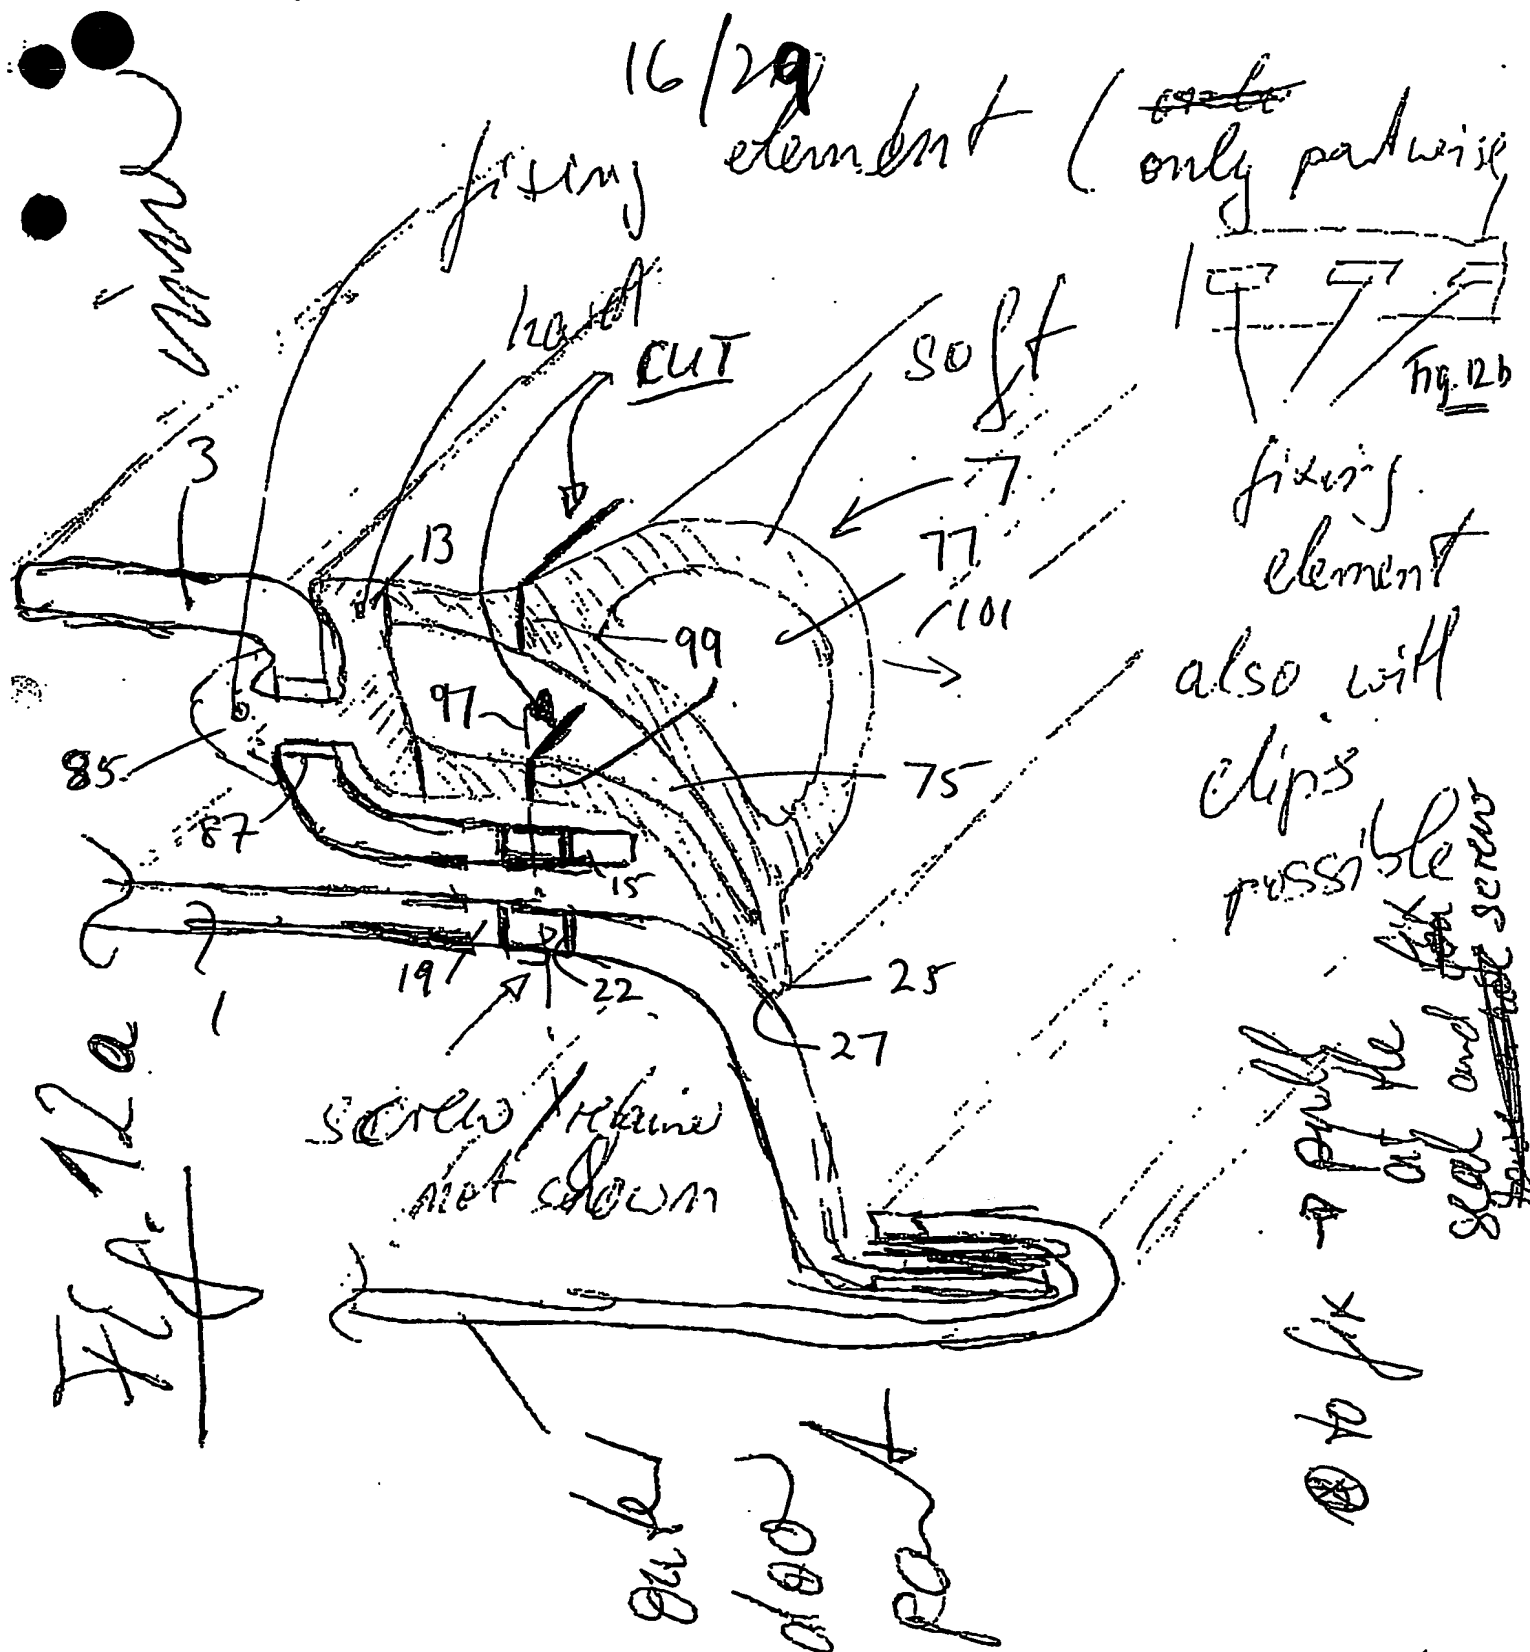 16/29
fixing element (only partwise
hard
CUT
soft
Fig. 12b
fixing
element
also with
clips
possible
3
13
7
77
101
99
97
85
87
75
15
19
22
25
27
1
screw/retainer
not shown
Fig. 12a
door
part
to fix → pull
at the
seal and
screw